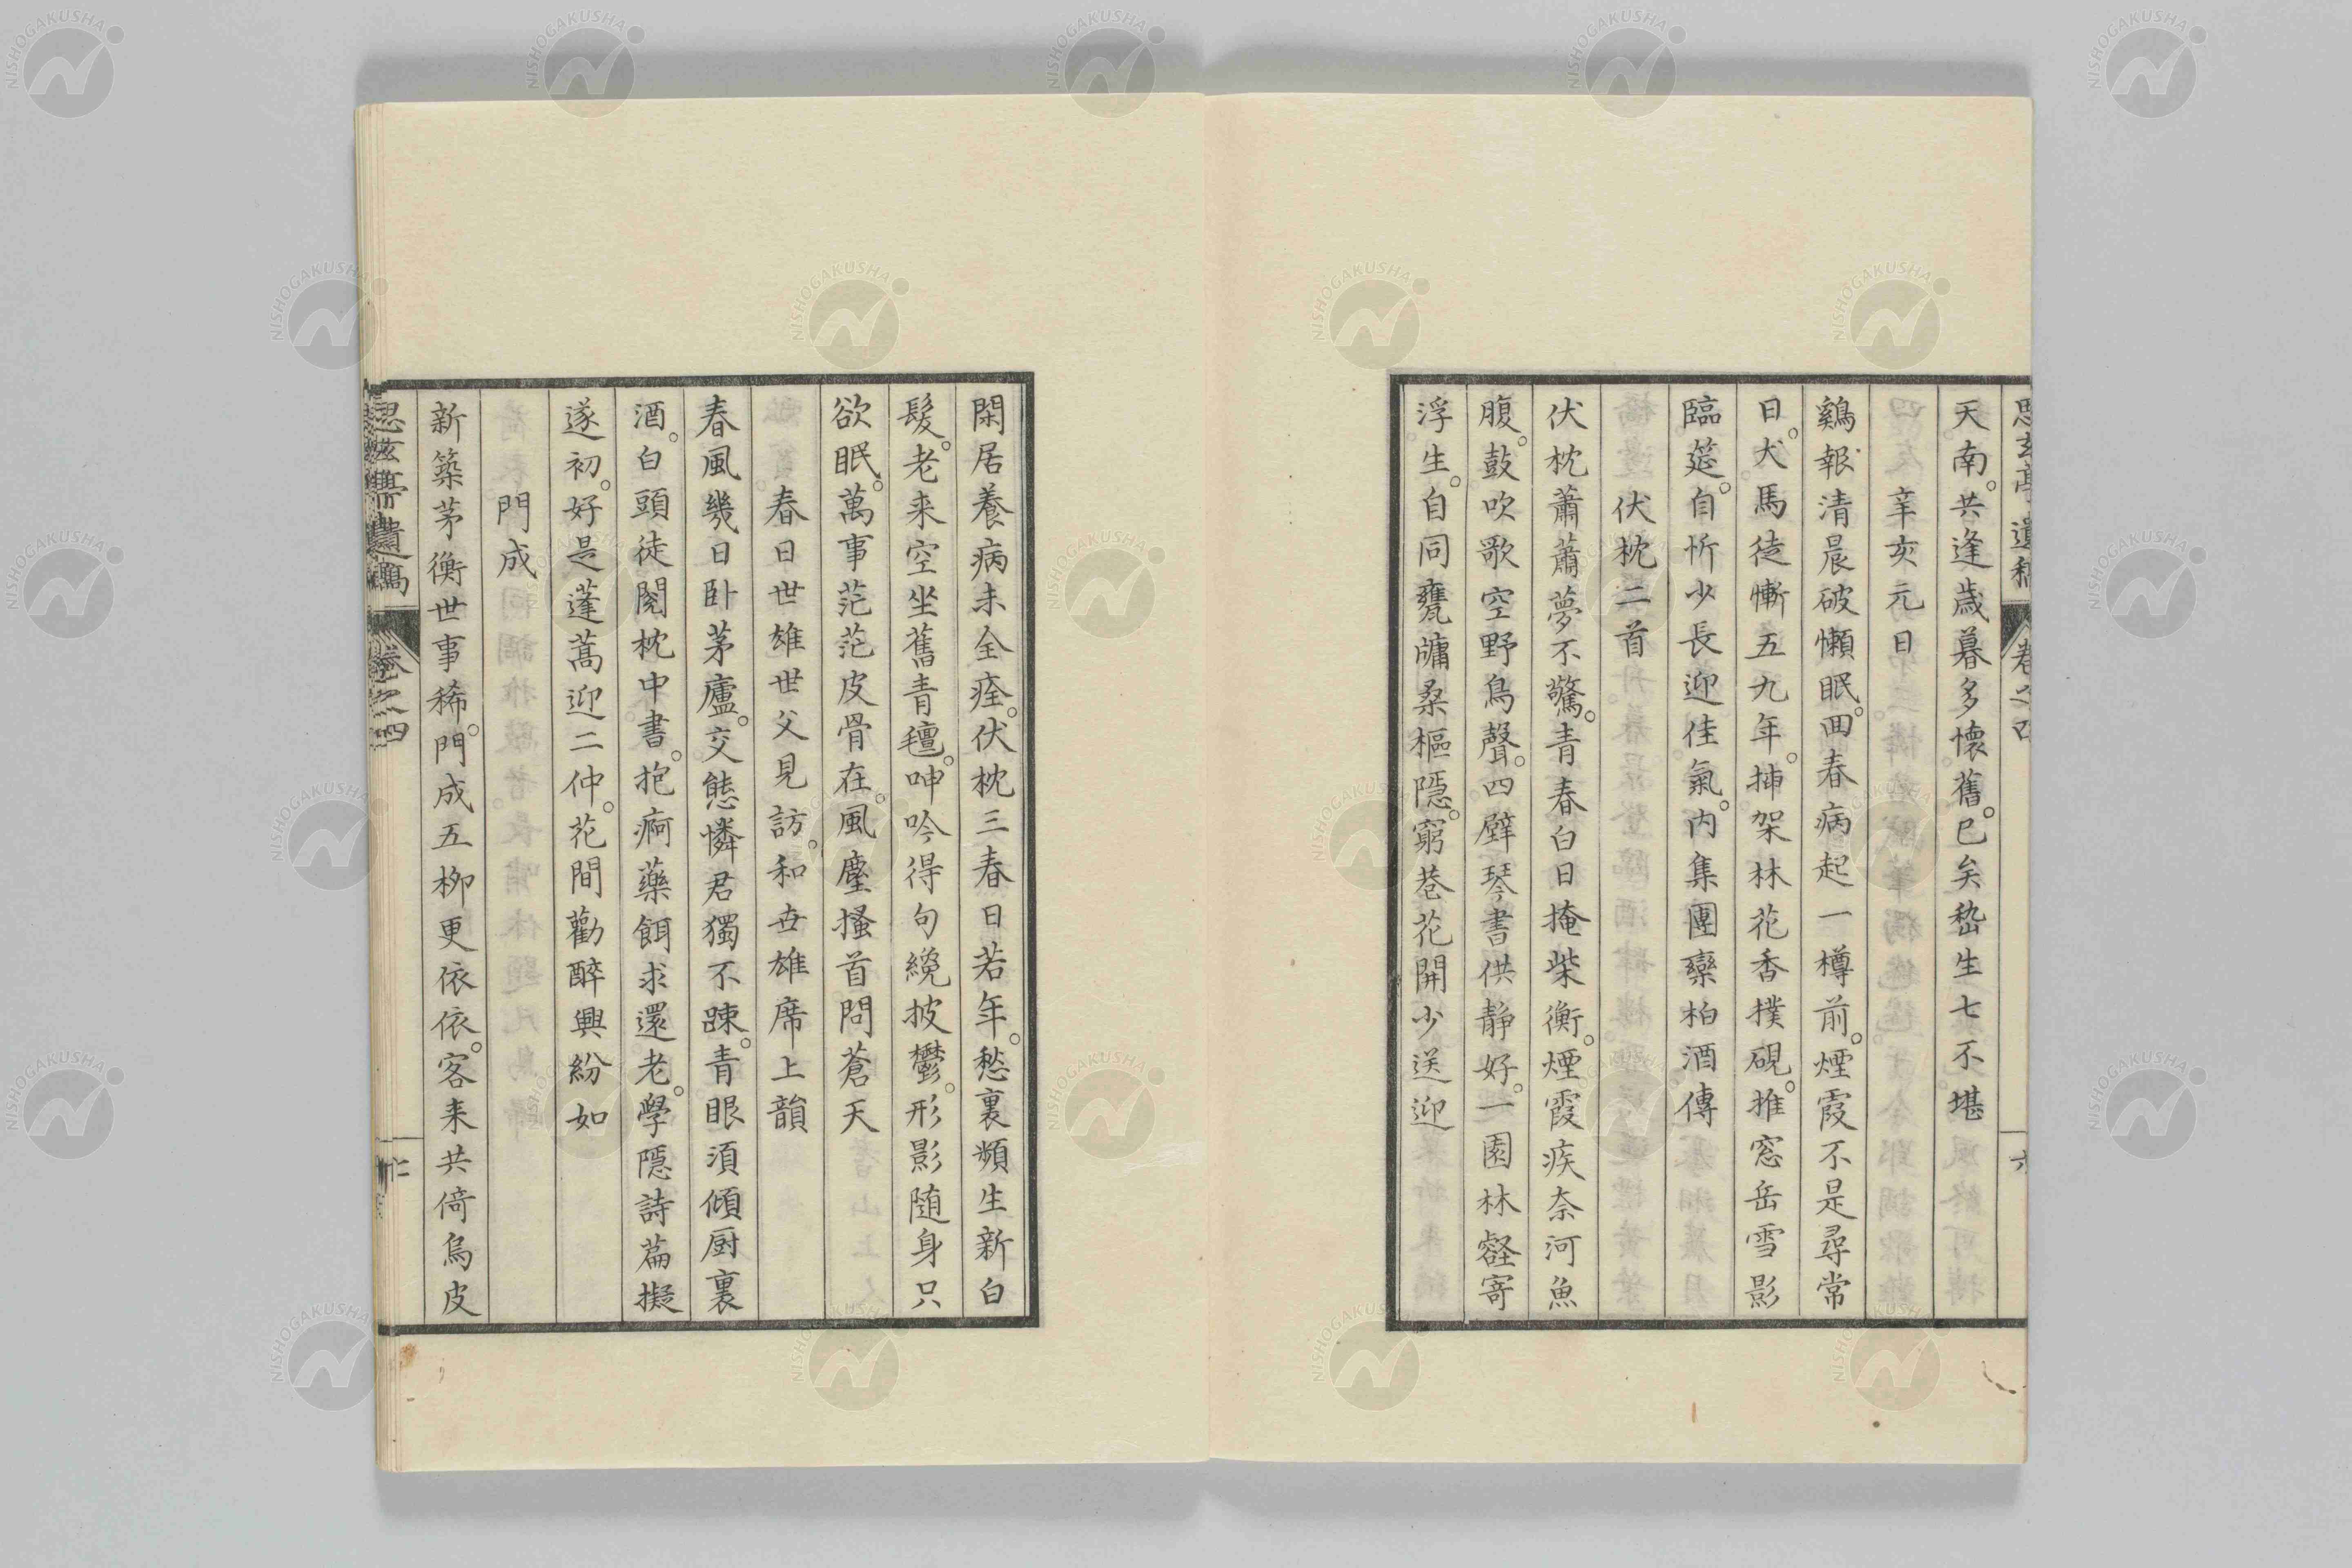 天南。共逢歳暮多懷舊。已矣嵆生七不堪
辛亥元日
鷄報清晨破懶眠。囬春病起一樽前。煙霞不是尋常
日。犬馬徒慚五九年。揷架林花香撲硯。推窓岳雪影
臨筵。自忻少長迎佳氣。内集團欒柏酒傳
伏枕二首
伏枕蕭蕭夢不驚。青春白日掩柴衡。煙霞疾奈河魚
腹。鼓吹歌空野鳥聲。四壁琴書供静好。一園林壑寄
浮生。自同甕牖桑樞隱。窮巷花開少送迎
閑居養病未全痊。伏枕三春日若年。愁裏頻生新白
髮。老来空坐舊青氊。呻吟得句纔披鬱。形影随身只
欲眠。萬事茫茫皮骨在。風塵搔首問蒼天
春日世雄世父見訪。和世雄席上韻
春風幾日卧茅廬。交態憐君獨不踈。青眼須傾厨裏
酒。白頭徒閲枕中書。抱痾藥餌求還老。學隱詩篇擬
遂初。好是蓬蒿迎二仲。花間勸醉興紛如
門成
新築茅衡世事稀。門成五柳更依依。客来共倚烏皮
思玄亭遺稿
卷之四
NISHOGAKUSHA